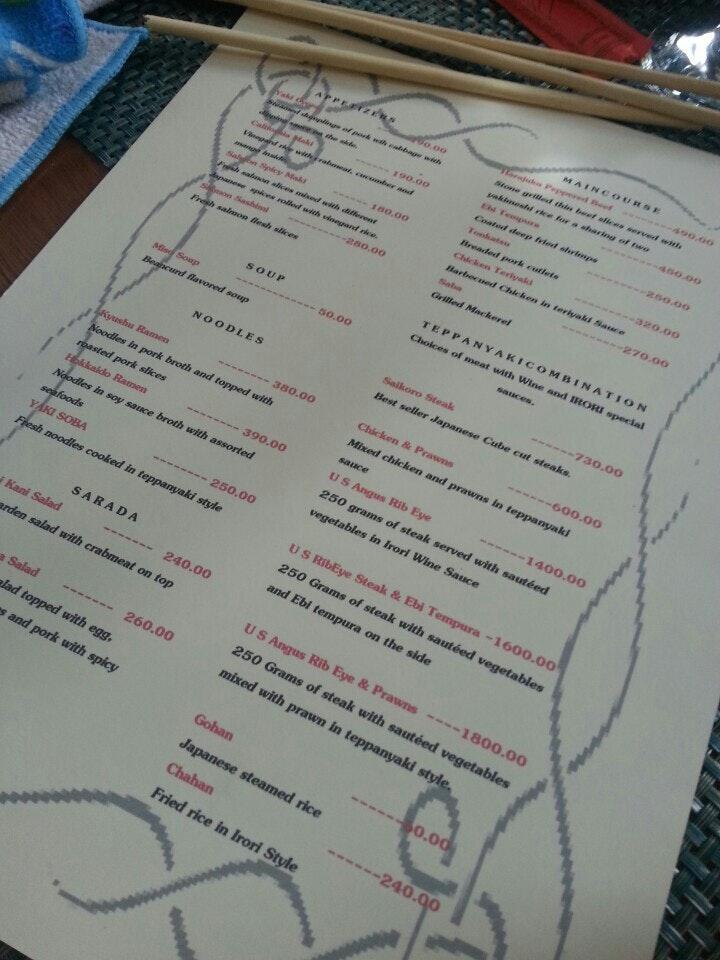 APPETIZERS
Yaki
Steamed dumplings of pork with cabbage with
on the side.
California Maki ------- 190.00
Vinegred rice with crabmeat, cucumber and
mango inside
Salmon Spicy Maki ------- 180.00
Fresh salmon slices mixed with different
Japanese spices rolled with vinegard rice.
Salmon Sashimi --------280.00
Fresh salmon flesh slices
SOUP
Miso Soup ---------------- 50.00
Beancurd flavored soup
NOODLES
Kyushu Ramen --------- 380.00
Noodles in pork broth and topped with
roasted pork slices
Hokkaido Ramen --------- 390.00
Noodles in soy sauce broth with assorted
seafoods
YAKI SOBA --------- 250.00
Fresh noodles cooked in teppanyaki style
SARADA
Kani Salad -------- 240.00
arden salad with crabmeat on top
Salad -------- 260.00
alad topped with egg,
s and pork with spicy
MAINCOURSE
Harajuku Peppered Beef -----------490.00
Stone grilled thin beef slices served with
yakimeshi rice for a sharing of two
Ebi Tempura -----------450.00
Coated deep fried shrimps
Tonkatsu -----------250.00
Breaded pork cutlets
Chicken Teriyaki -----------320.00
Barbecued Chicken in teriyaki Sauce
Saba -----------270.00
Grilled Mackerel
TEPPANYAKICOMBINATION
Choices of meat with Wine and IRORI special
sauces.
Saikoro Steak -------730.00
Best seller Japanese Cube cut steaks.
Chicken & Prawns -------600.00
Mixed chicken and prawns in teppanyaki
sauce
U S Angus Rib Eye -------1400.00
250 grams of steak served with sautéed
vegetables in Irori Wine Sauce
U S RibEye Steak & Ebi Tempura -1600.00
250 Grams of steak with sautéed vegetables
and Ebi tempura on the side
U S Angus Rib Eye & Prawns ----1800.00
250 Grams of steak with sautéed vegetables
mixed with prawn in teppanyaki style.
Gohan
Japanese steamed rice
Chahan -------240.00
Fried rice in Irori Style